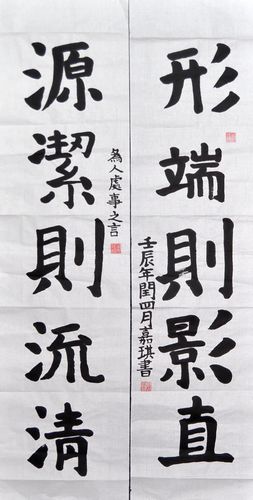 形端則影直
壬辰年閏四月嘉琪書
為人處事之言
源潔則流清